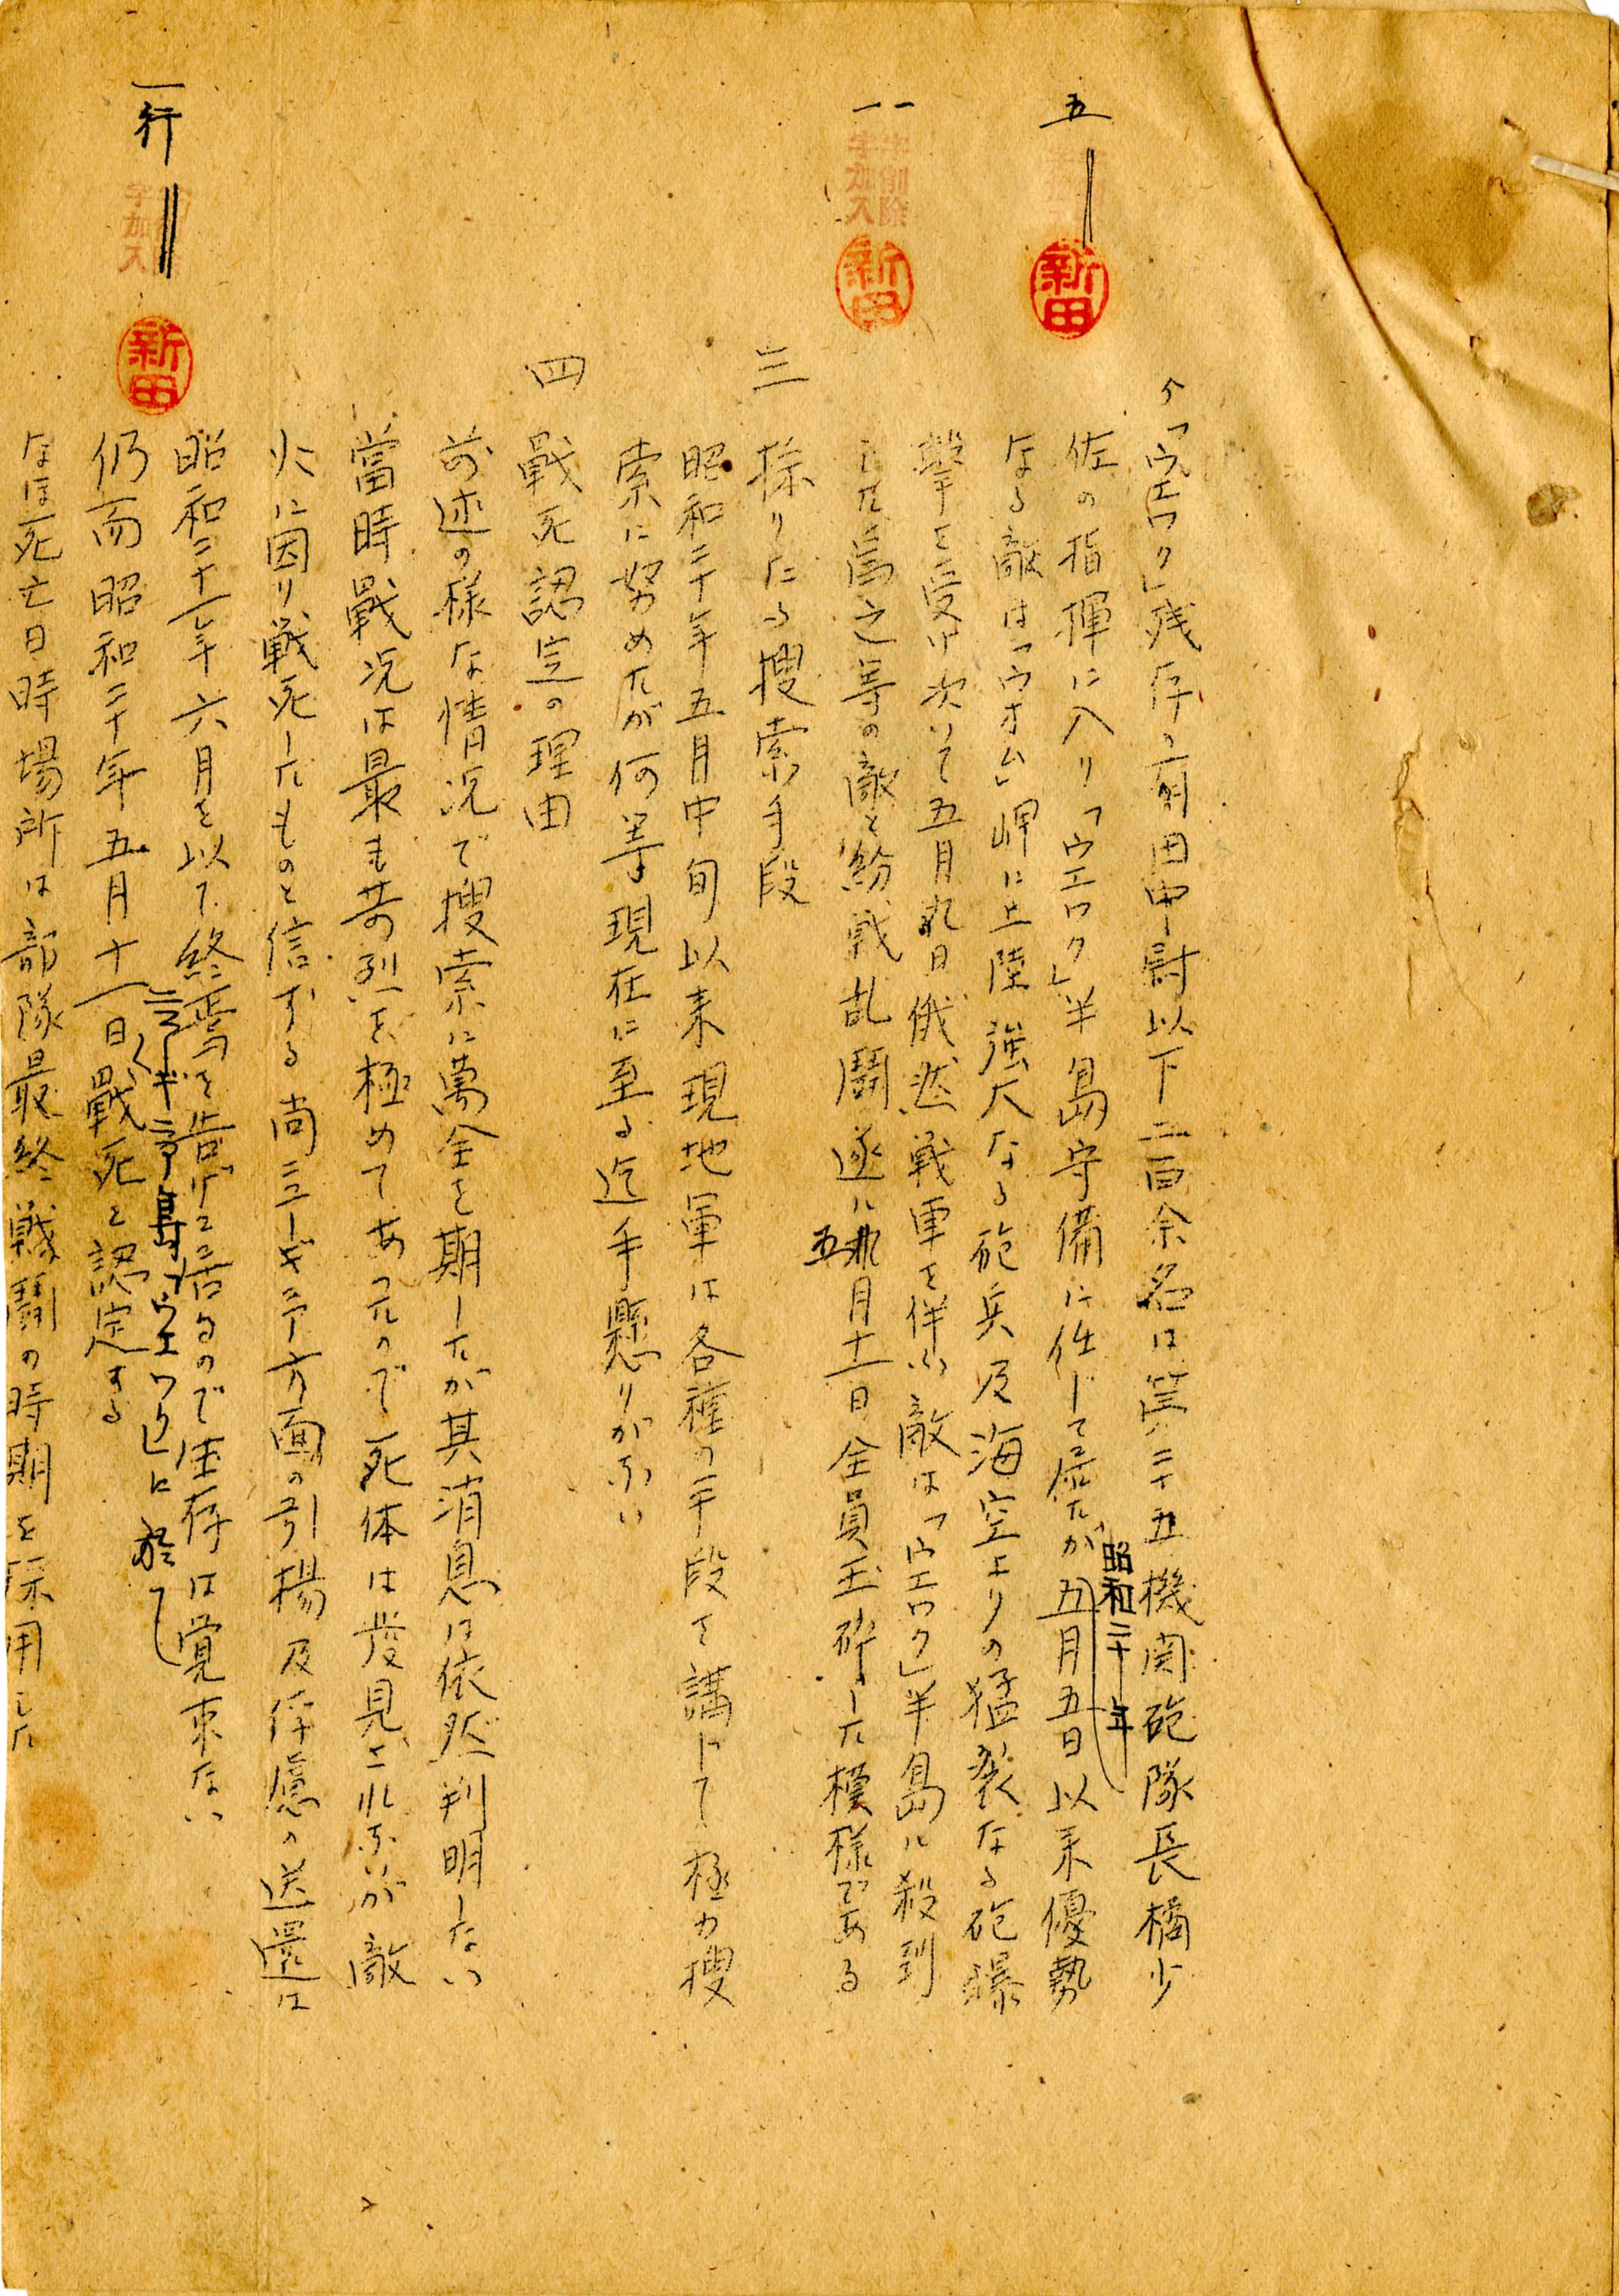 五
字削除
字加入
新田
一一
字削除
字加入
新田
一行
字加入
新田
「ウエワク」残存の有田中尉以下二百余名は第二十五機関砲隊長橘少
佐の指揮に入り「ウエワク」半島守備に任じて居たが五月五日以来優勢
昭和二十年
なる敵は「ウオム」岬に上陸強大なる砲兵及海空よりの猛烈なる砲爆
撃を受け次いで五月九日俄然戦車を伴ふ敵は「ウエワク」半島に殺到
した為之等の敵と紛戦乱闘遂に九月十一日全員玉砕した模様である
五
三 採りたる捜索手段
昭和二十年五月中旬以来現地軍は各種の手段を講じて極力捜
索に努めたが何等現在に至る迄手懸りがない
四 戰死認定の理由
前述の様な情況で捜索に萬全を期したが其消息は依然判明しない
當時戰況は最も苛烈を極めてあったので死体は発見されないが敵
火に因り戦死したものと信ずる尚ニューギニア方面の引揚及俘虜の送還は
昭和二十一年六月を以て終焉を告げて居るので生存は覚束ない
ニューギニア島ウエワクに於て
仍而昭和二十年五月十一日戰死と認定する
なほ死亡日時場所は部隊最終戰鬪の時期を採用した